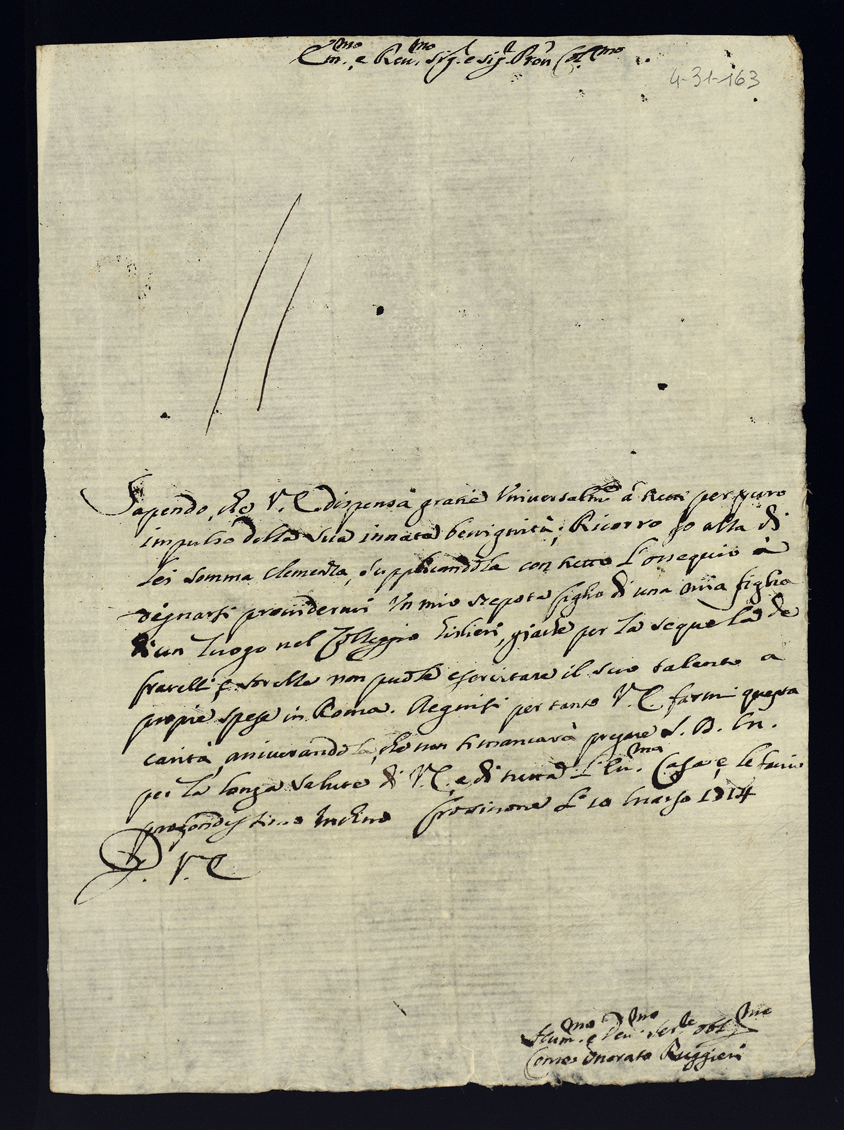 Em.mo e Reu.mo Sig.e e Sig.e Pron Col.mo
4-31-163
Sapendo, che V. E dispensa gratie Universalm.te à tutti per puro
impulso della sua innata benignità; Ricorro io alla di
Lei somma clemenza, supplicandola con tutto L'ossequio à
degnarsi provvedermi Un mio nepote figlio di una mia figlia
di un luogo nel Colleggio Gislieri, giache per la sequela de
fratelli, e sorelle non puole esercitare il suo talento a
proprie spese in Roma. Degnisi per tanto V. E farmi questa
carità, assicurandola, che non si mancarà pregare S. D. M.
per la longa salute di V. E, e di tutta L'Em.ma Casa, e le faccio
profondissimo Inchino Frosinone L 10 Marzo 1714
D. V. E
Hum.mo e Deu.mo Ser.le obl.mo
Come Onorato Ruggieri